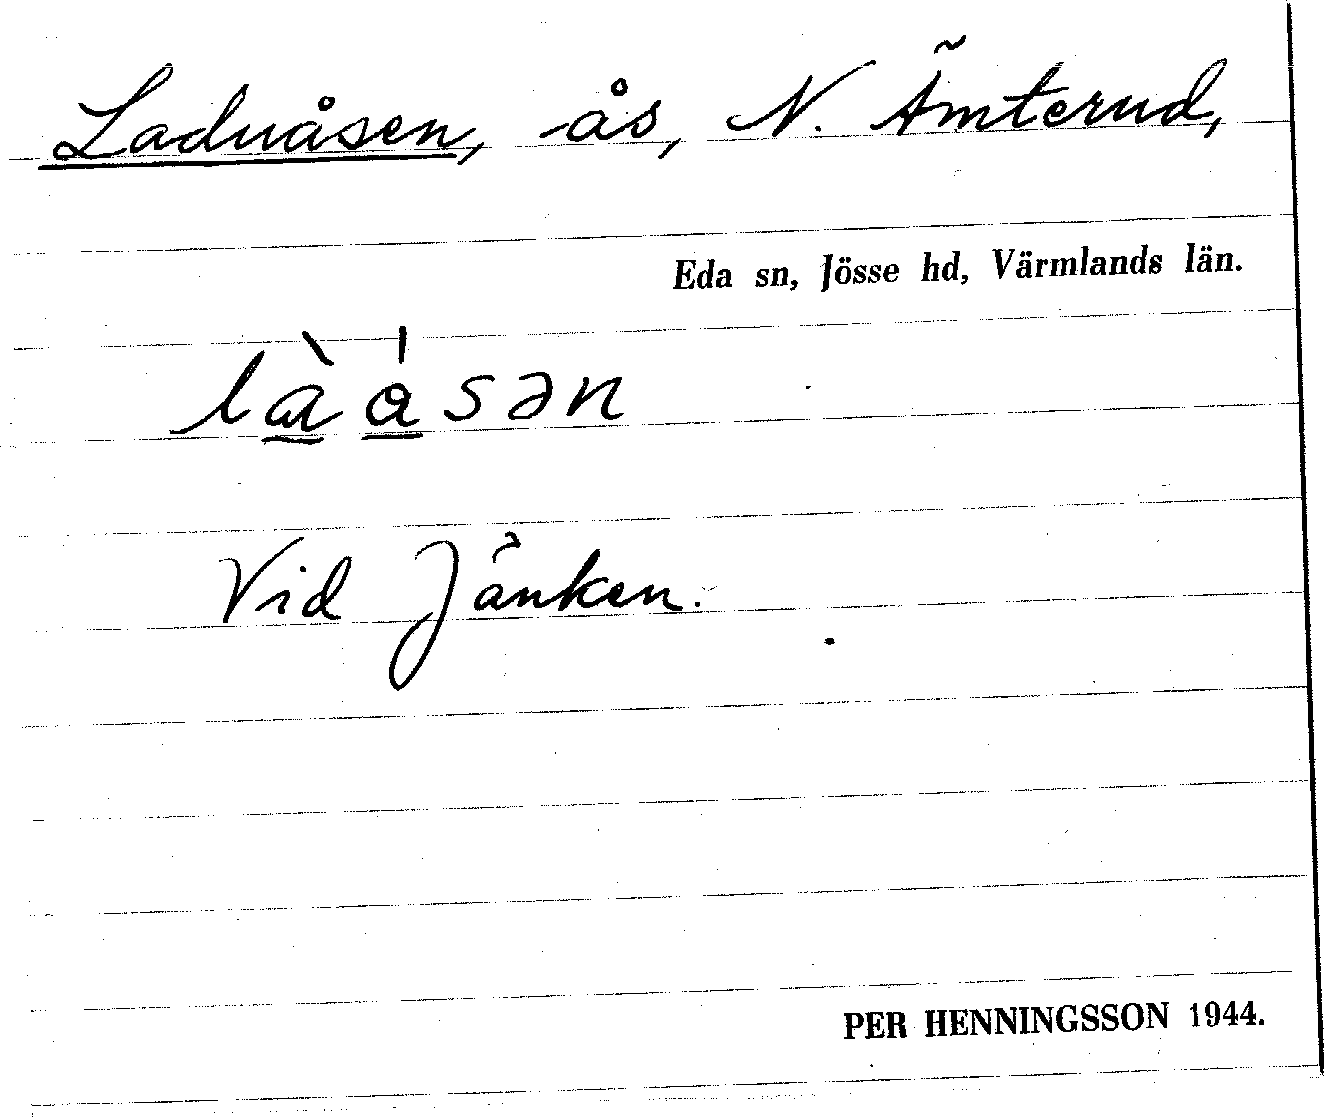 Laduåsen, -ås, N. Ämterud,
Eda sn, Jösse hd, Värmlands län.
là̱á̱sən
Vid Jänken.
PER HENNINGSSON 1944.